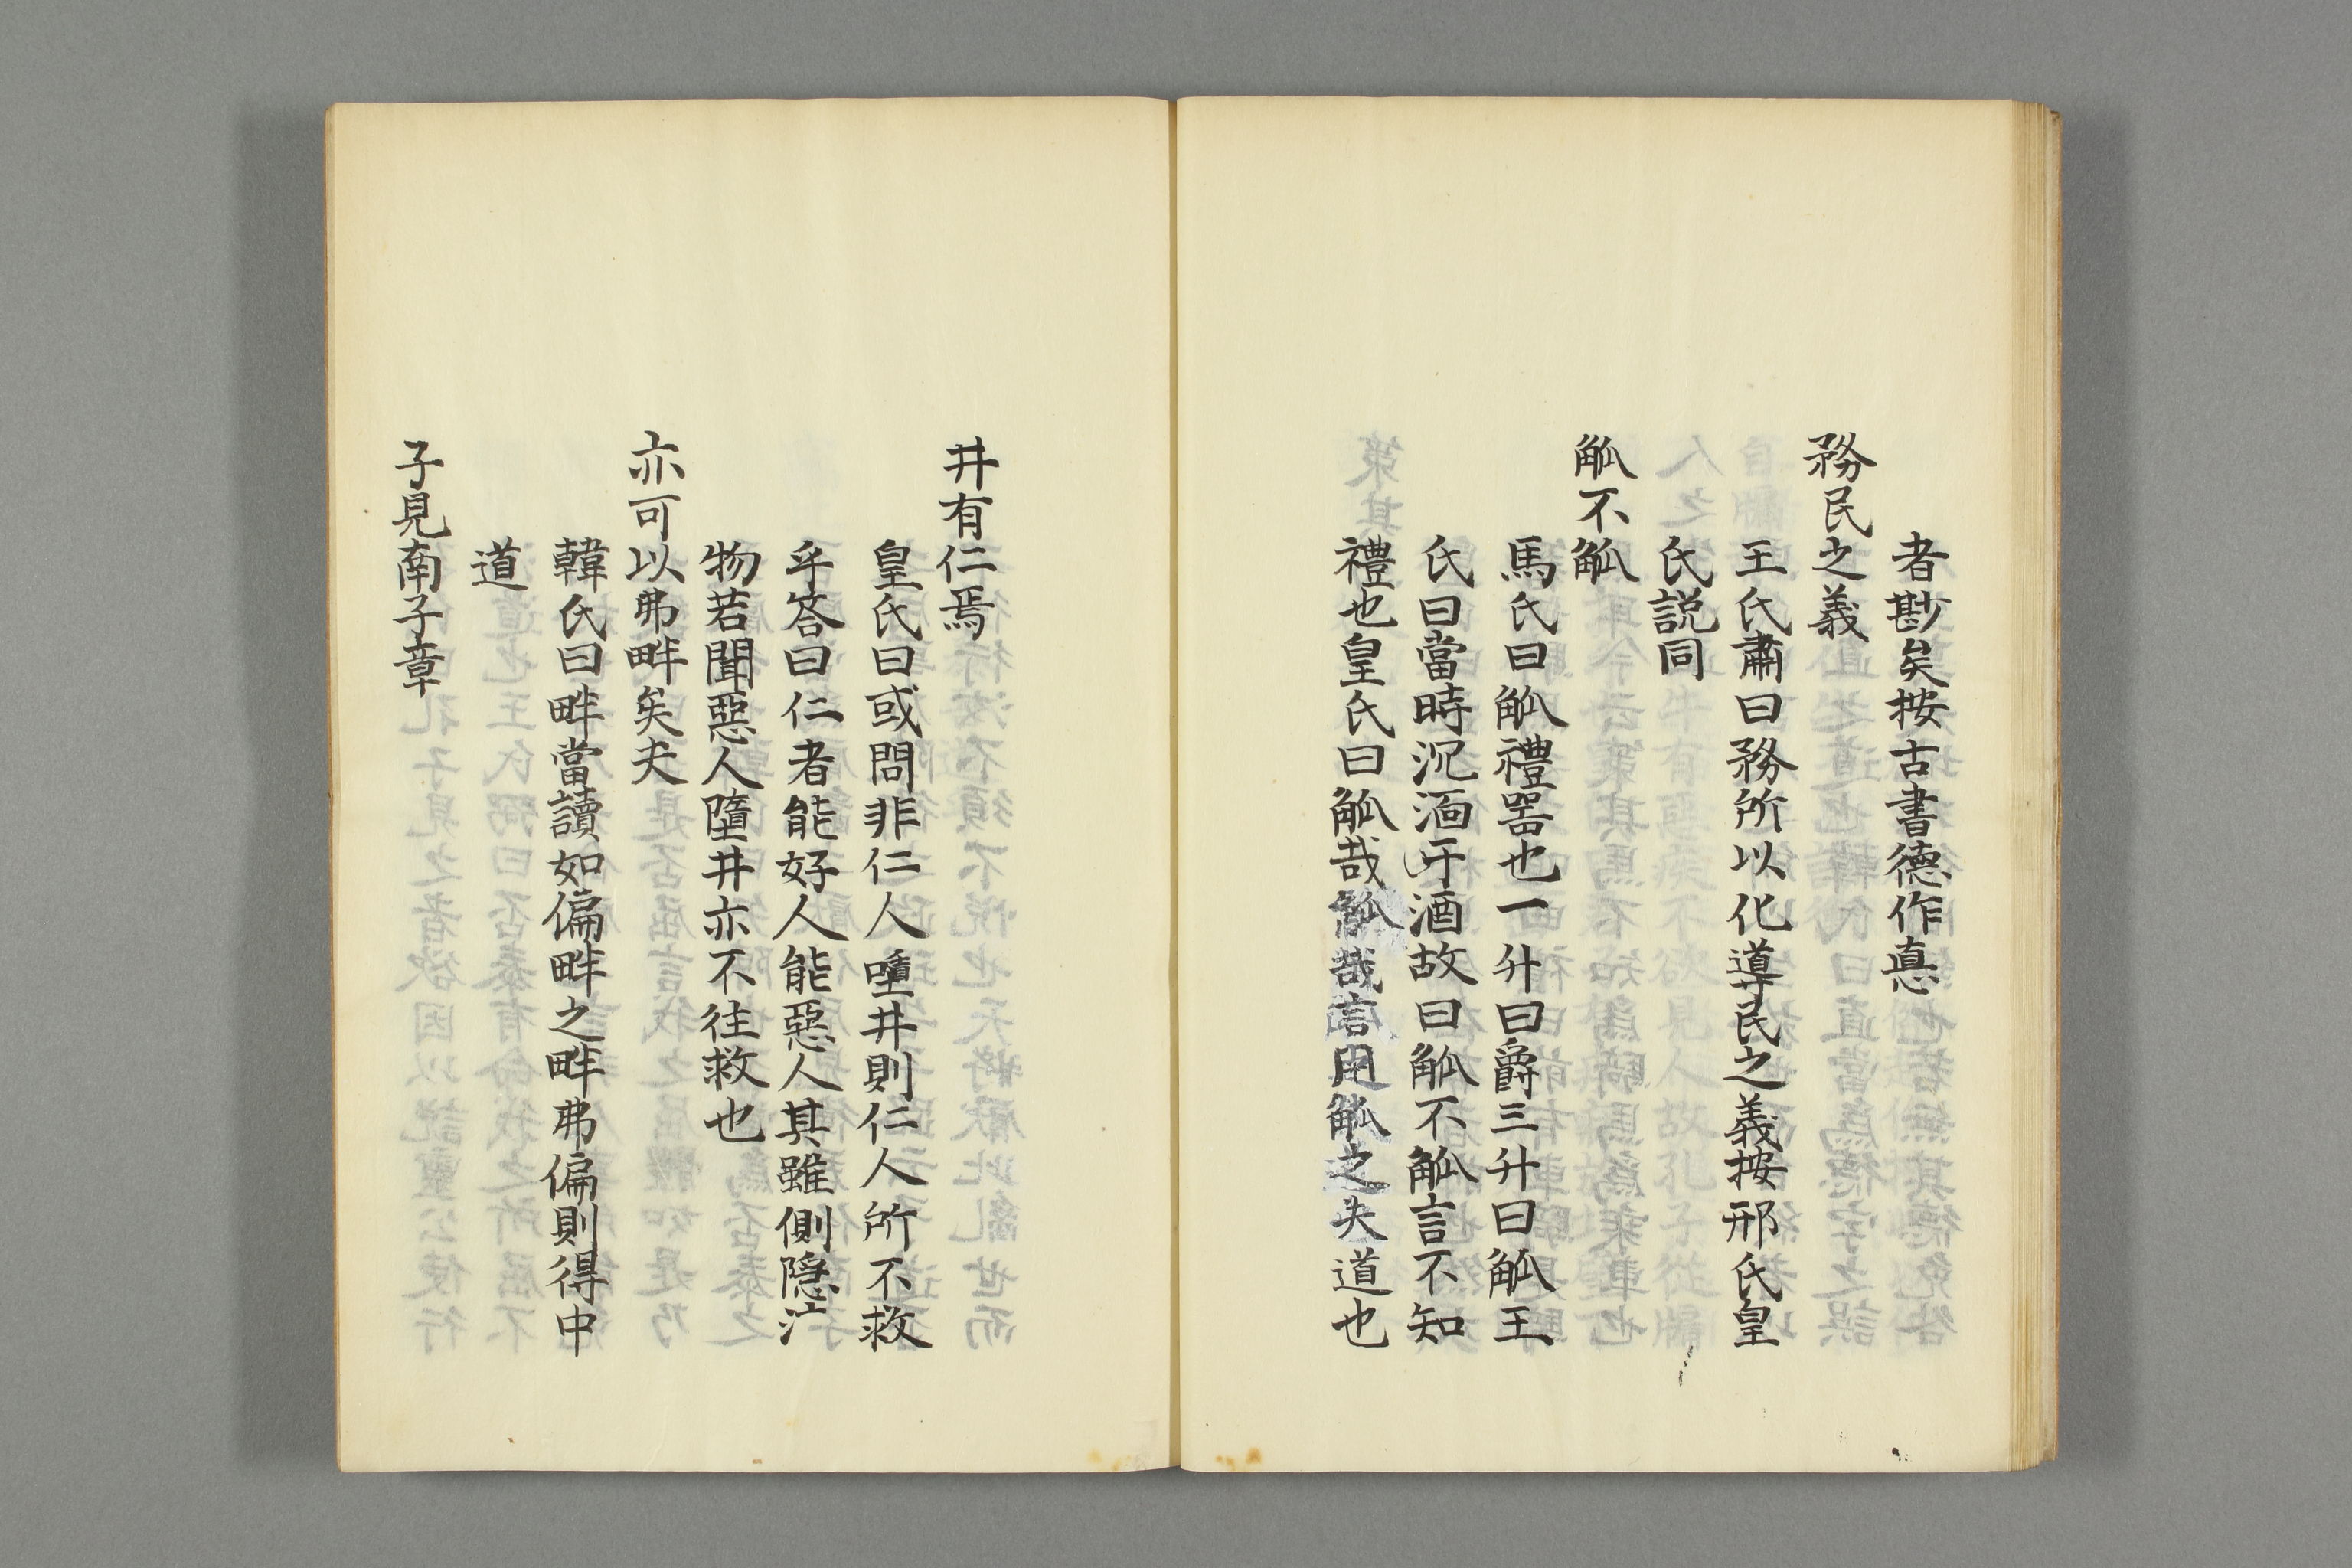 者尠矣按古書德作悳
務民之義
王氏肅曰務所以化導民之義按邢氏皇
氏説同
觚不觚
馬氏曰觚禮噐也一升曰爵三升曰觚王
氏曰當時沉湎于酒故曰觚不觚言不知
禮也皇氏曰觚哉觚哉言用觚之失道也
井有仁焉
皇氏曰或問非仁人墮井則仁人所不救
乎答曰仁者能好人能惡人其雖側隠泣
物若聞惡人墮井亦不往救也
亦可以弗畔矣夫
韓氏曰畔當讀如偏畔之畔弗偏則得中
道
子見南子章